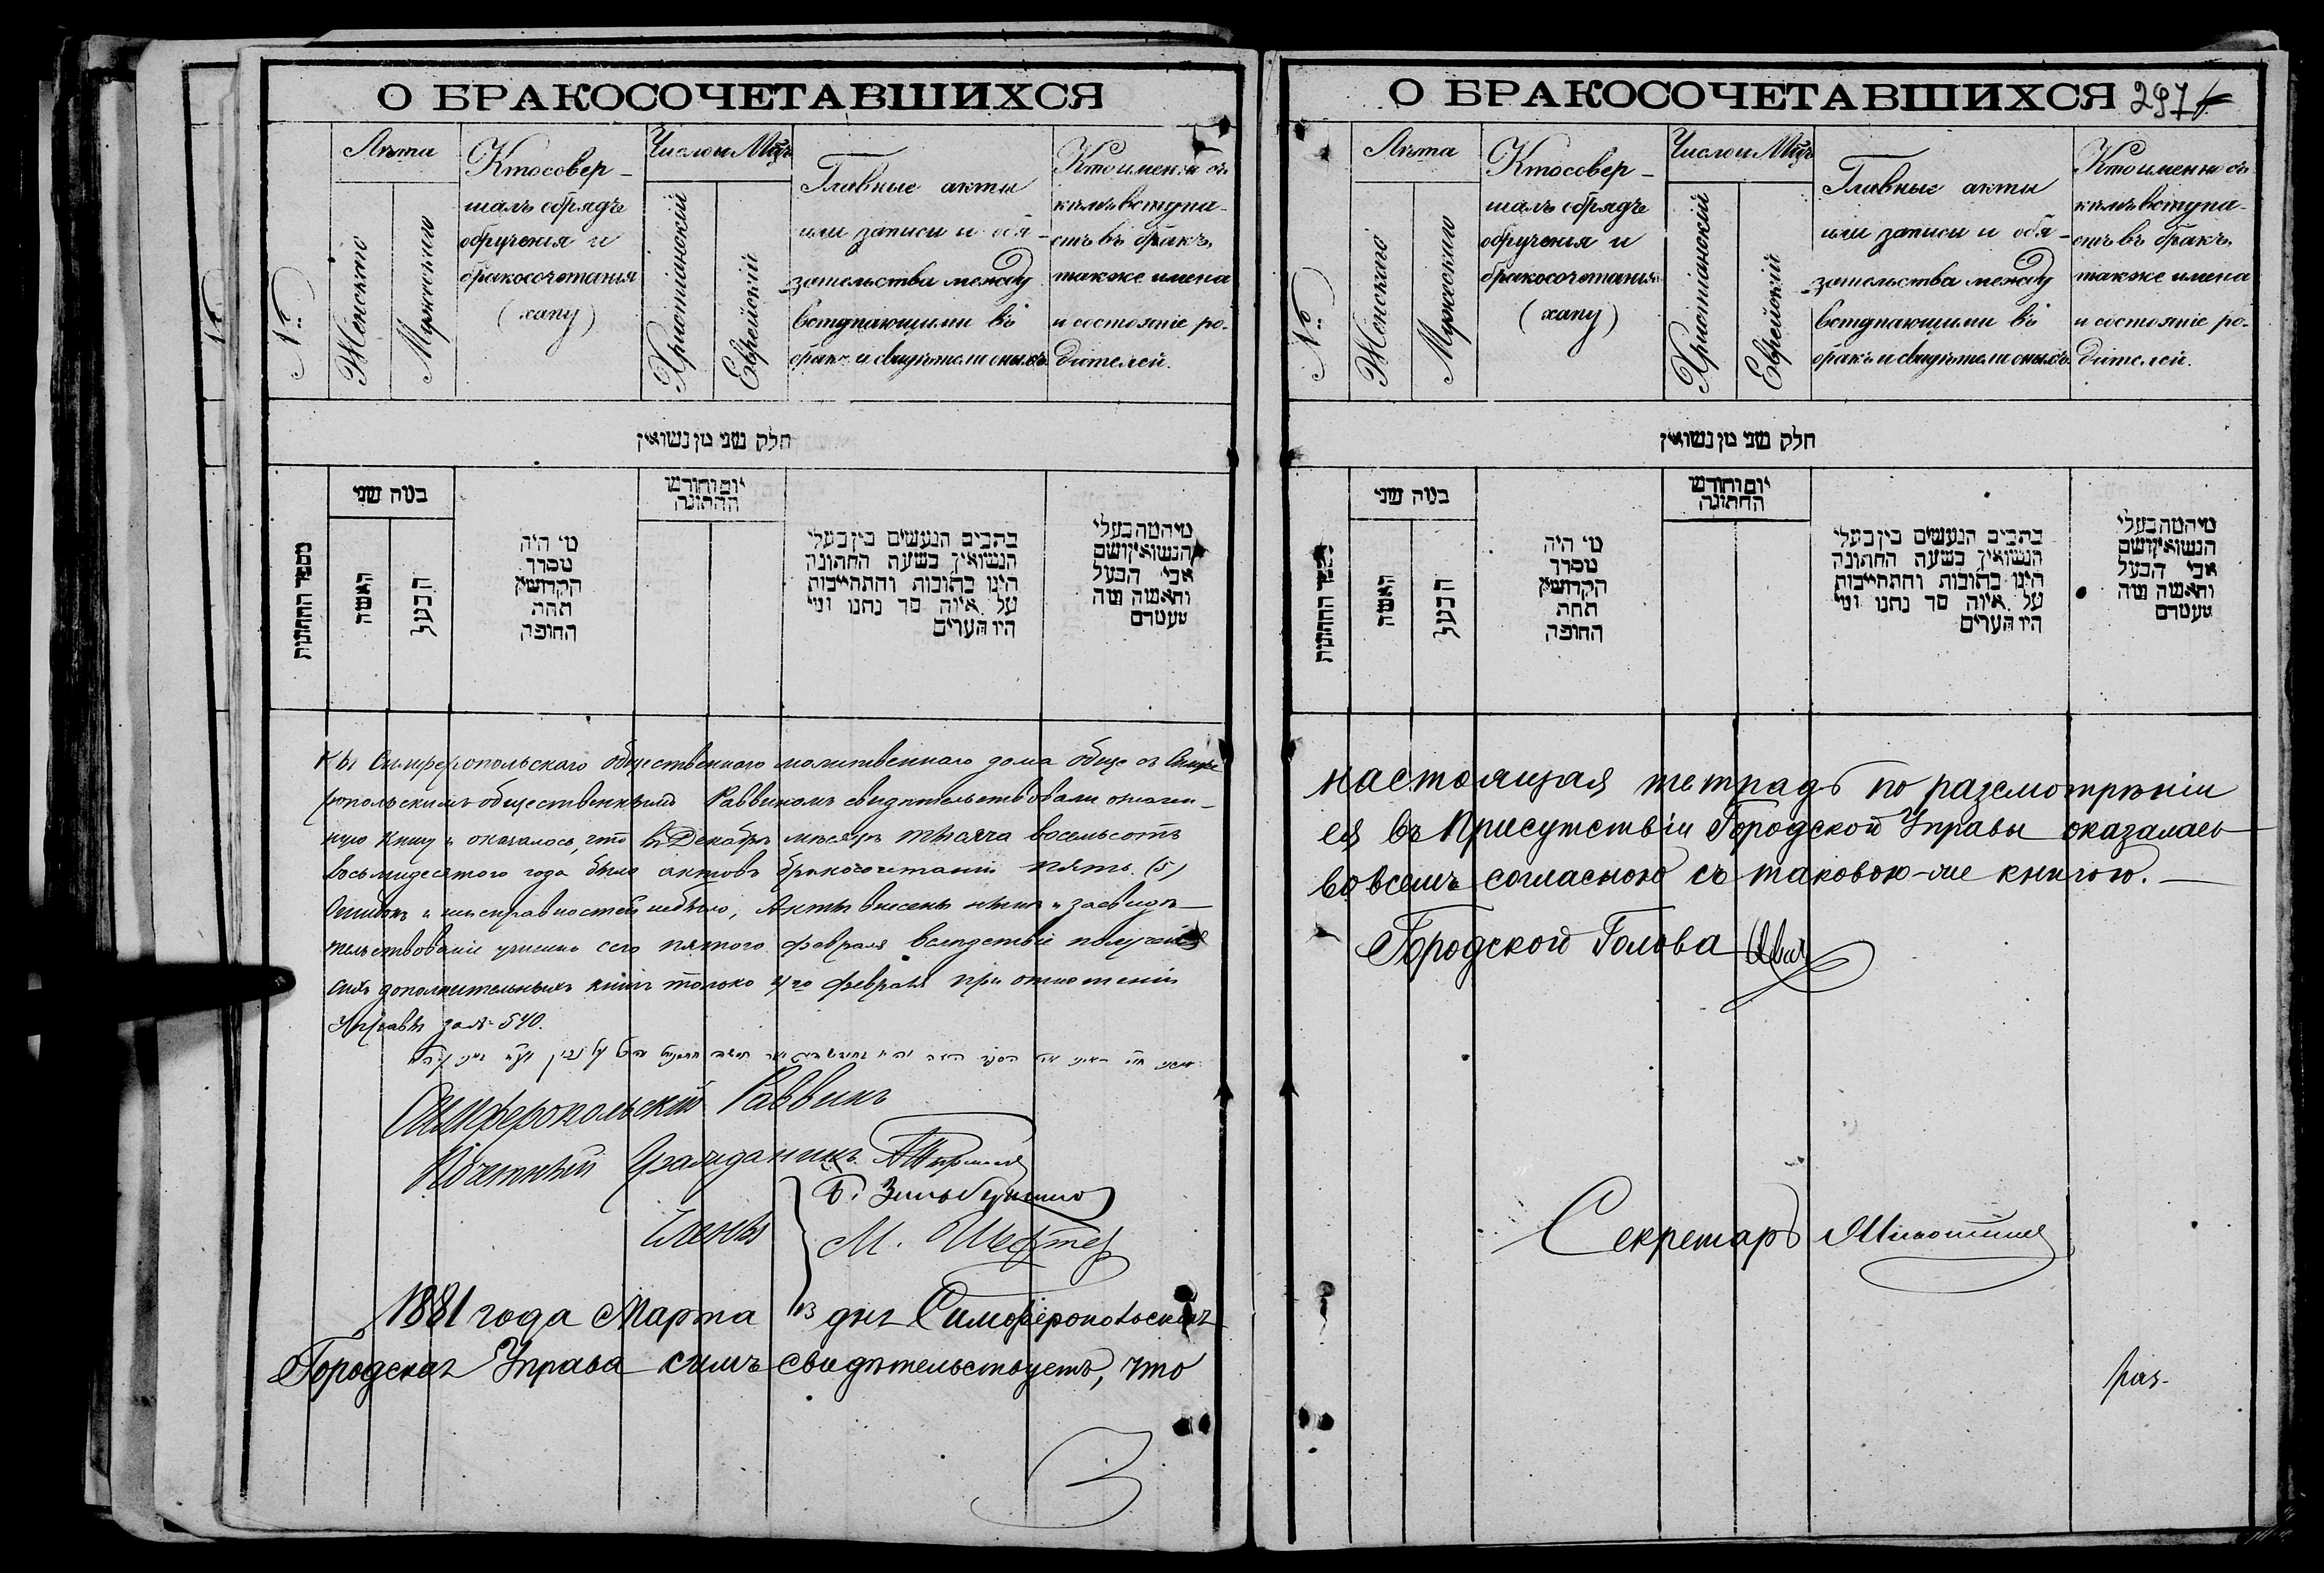 О БРАКОСОЧЕТАВШИХСЯ
№
Лѣта
Женскаго
Мужескаго
Кто совер-
шалъ обрядъ
обрученія и
бракосочетанія
(хапу)
Число и Мцъ
Христіанскій
Еврейскій
Главные акты
или записи и обя-
зательства между
вступающими въ
бракъ и свидѣтели оныхъ
Кто именно съ
кѣмъ вступа-
етъ въ бракъ,
также имена
и состояніе ро-
дителей.
חלק שני מן נשואין
מספר החתונות
במה שני
האשה
הבעל
מי היה
מסדר
הקדושין
תחת
החופה
יום וחודש
החתונה
כתבים הנעשים בין בעלי
הנשואין בשעת החתונה
היינו כתובות והתחייבות
על איזה סך נתנו ומי
היו העדים
מי המה בעלי
הנשואין ושם
אבי הבעל
והאשה מה
מעמדם
кы Симферопольскаго общественнаго молитвеннаго дома обще съ Симфе
ропольскимъ общественнымъ Раввиномъ свидѣтельствовали
ную книгу и оказалось, что въ Декабрѣ мѣсяцѣ тысяча восемьсотъ
восьмидесятого года было актовъ бракосочетаній пять (5)
Ошибокъ и неисправностей небыло, Акты внесены и засвидѣ-
тельствованіе учинено сего пятого февраля вслѣдствіе полученія
сихъ дополнительныхъ книгъ только 4го февраля при отношеніи
Управы за № 540.
Симферопольскій Раввинъ
Почетный Гражданинъ
Члены
М. Шефтер
1881 года Марта 13 дня Симферопольская
Городская Управа симъ свидѣтельствуетъ, что
О БРАКОСОЧЕТАВШИХСЯ 297
№
Лѣта
Женскаго
Мужескаго
Кто совер-
шалъ обрядъ
обрученія и
бракосочетанія
(хапу)
Число и Мцъ
Христіанскій
Еврейскій
Главные акты
или записи и обя-
зательства между
вступающими въ
бракъ и свидѣтели оныхъ
Кто именно съ
кѣмъ вступа-
етъ въ бракъ,
также имена
и состояніе ро-
дителей.
חלק שני מן נשואין
מספר החתונות
במה שני
האשה
הבעל
מי היה
מסדר
הקדושין
תחת
החופה
יום וחודש
החתונה
כתבים הנעשים בין בעלי
הנשואין בשעת החתונה
היינו כתובות והתחייבות
על איזה סך נתנו ומי
היו העדים
מי המה בעלי
הנשואין ושם
אבי הבעל
והאשה מה
מעמדם
настоящая тетрадь по разсмотрѣніи
ея въ Присутствіи Городской Управы оказалась
во всемъ согласною съ таковою-же книгою.
Городской Голова
Секретарь
раз-